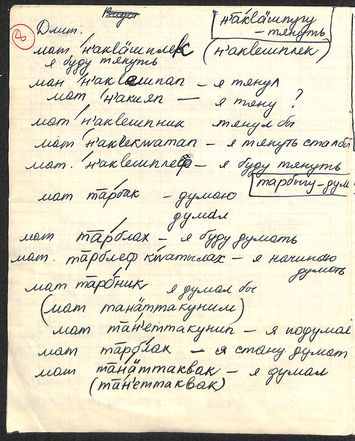 н'а́клӓшпугу
– тянуть
Длит.
мат н'аклӓшплек (н'аклешплек)
я буду тянуть
мат н'аклашпап – я тянул
мат н'акияп — я тяну ?
мат н'аклешпник тянул бы
мат н'аклекwатап – я тянуть стал бы
мат. н'аклешплеф – я буду тянуть
тарбыгу – дум
мат та̄рбак – думаю
думал
мат та̄рблах – я буду думать
мат. та̄рблеф кwатылах – я начинаю
думать
мат та̄рбник я думал бы
(мат танӓттакуним)
мат тан'еттакунип – я подумаю
мат та̄рблак – я стану думат
мат танӓттаквак – я думал
(тан'еттаквак)